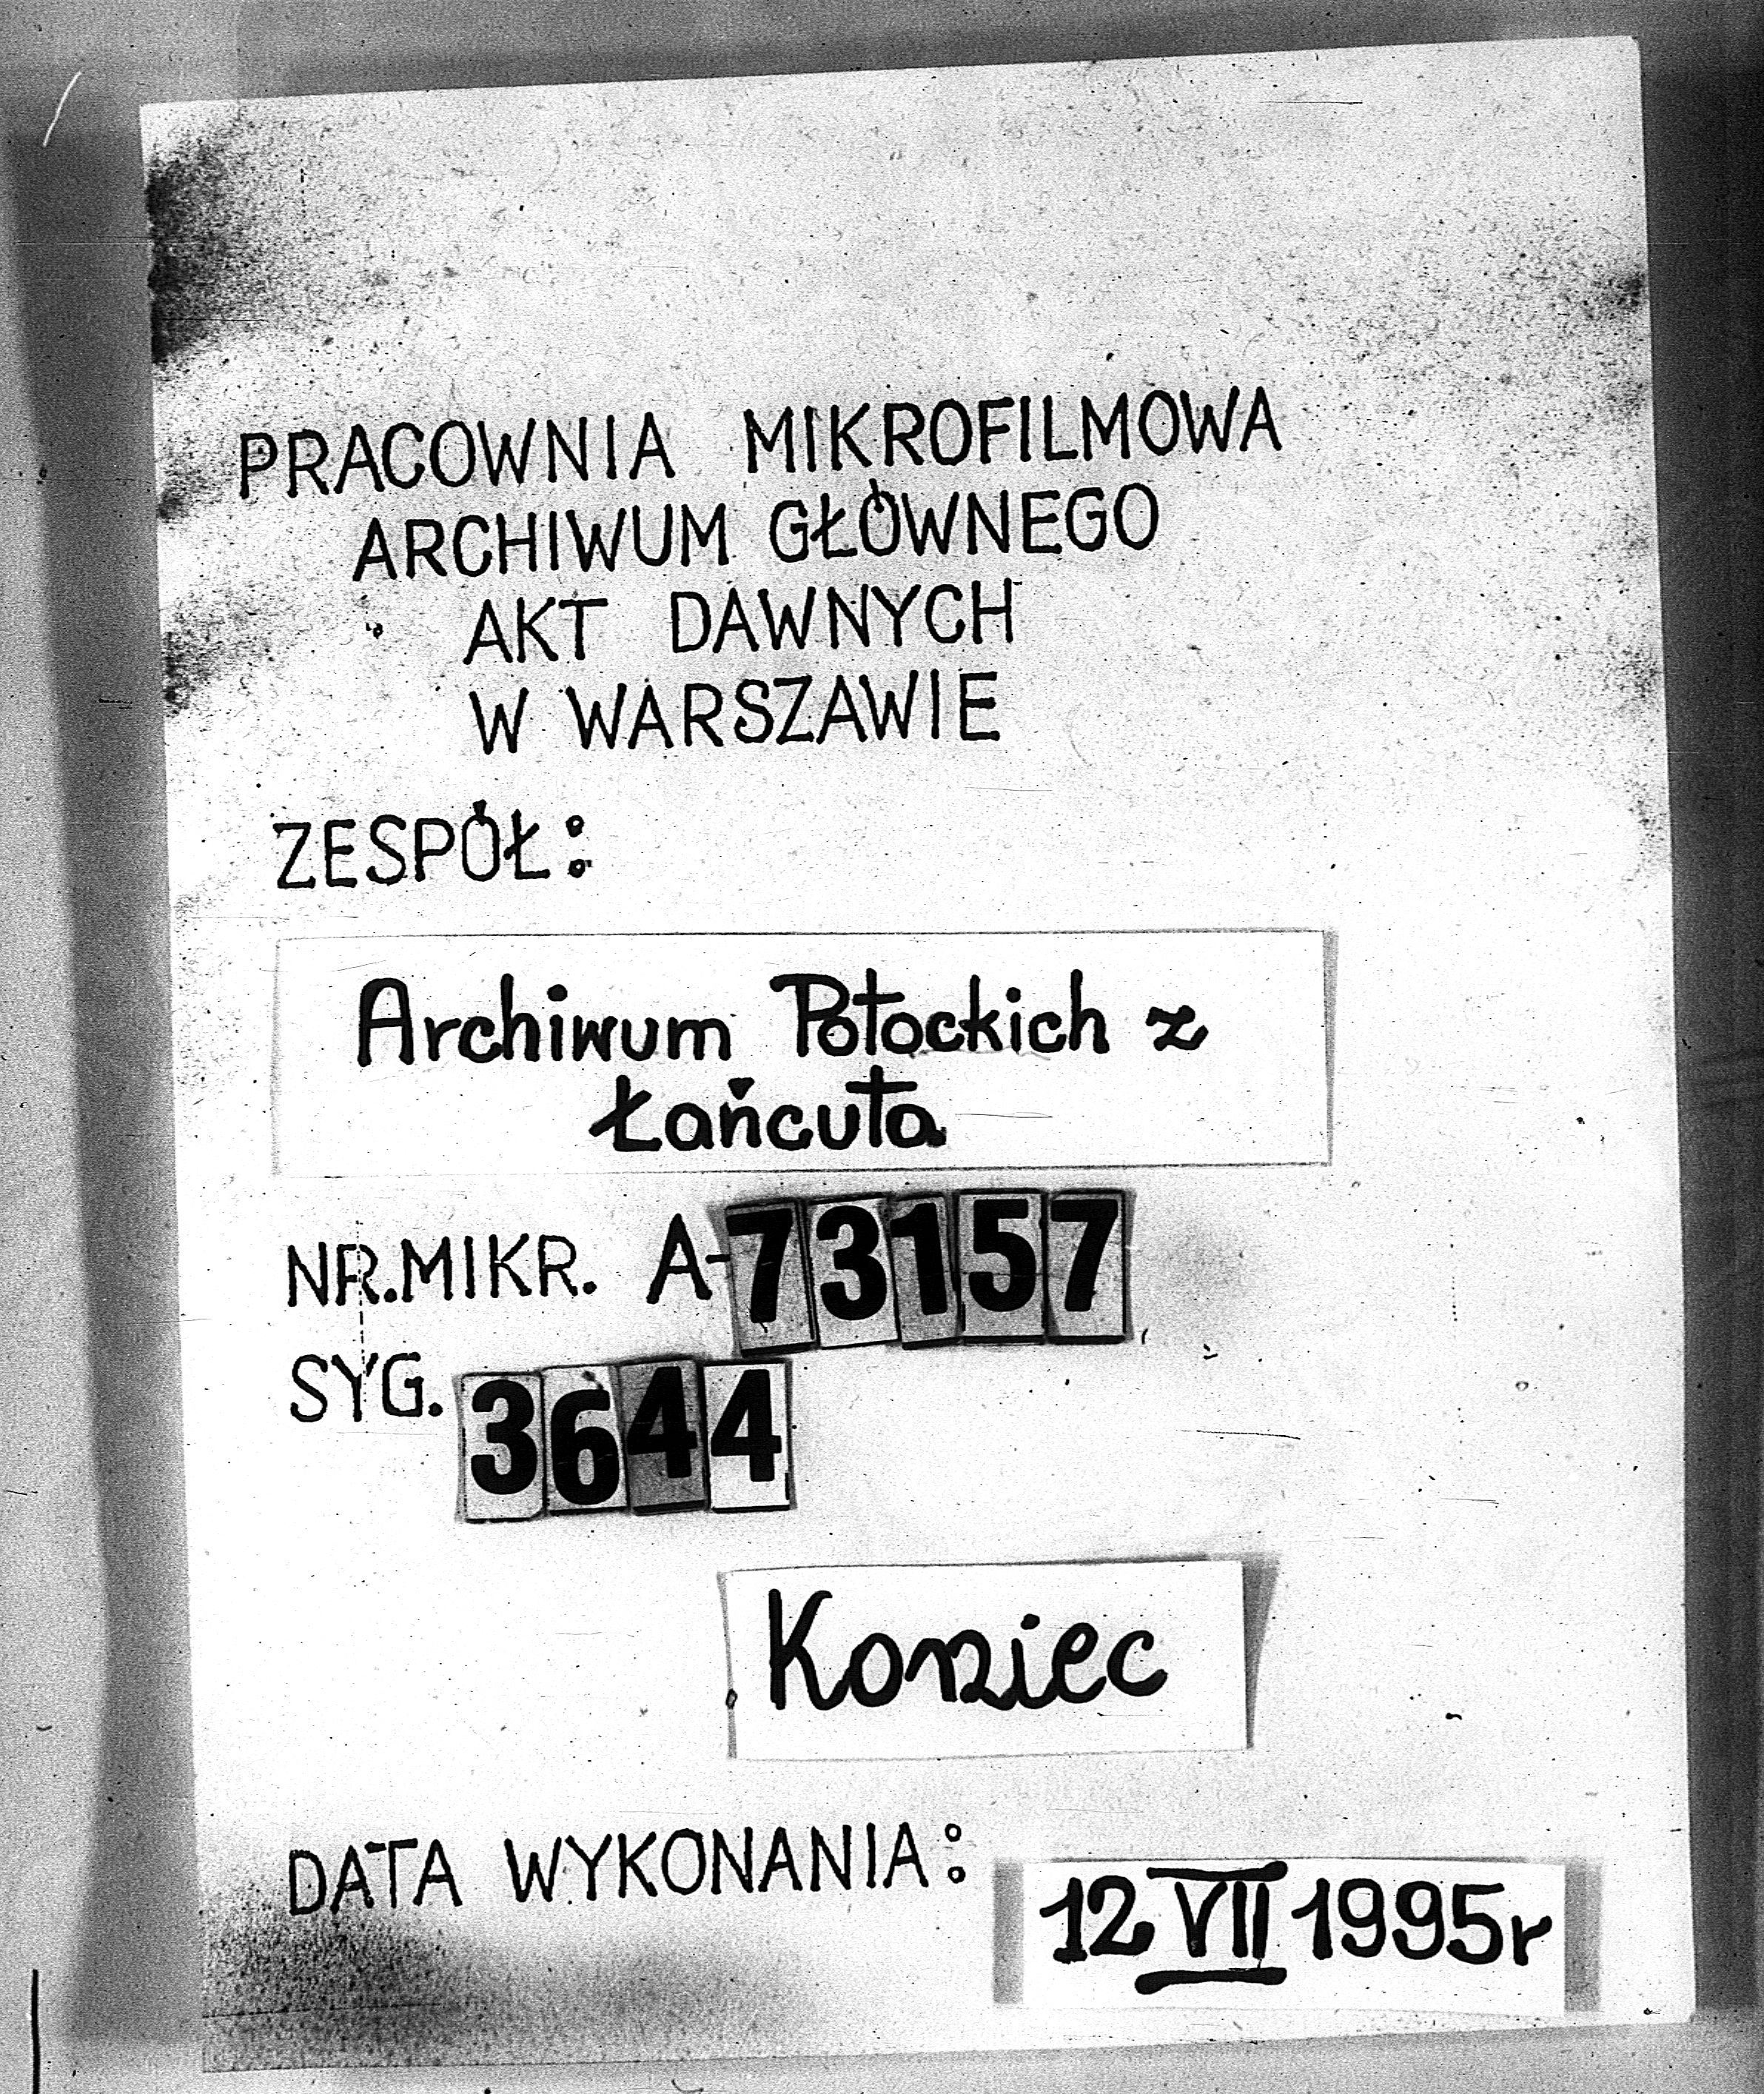 PRACOWNIA MIKROFILMOWA
ARCHIWUM GŁÓWNEGO
AKT DAWNYCH
W WARSZAWIE
ZESPÓŁ:
Archiwum Potockich z
Łańcuta
NR.MIKR. A-73157
SYG. 3644
Koniec
DATA WYKONANIA: 12 VII 1995r